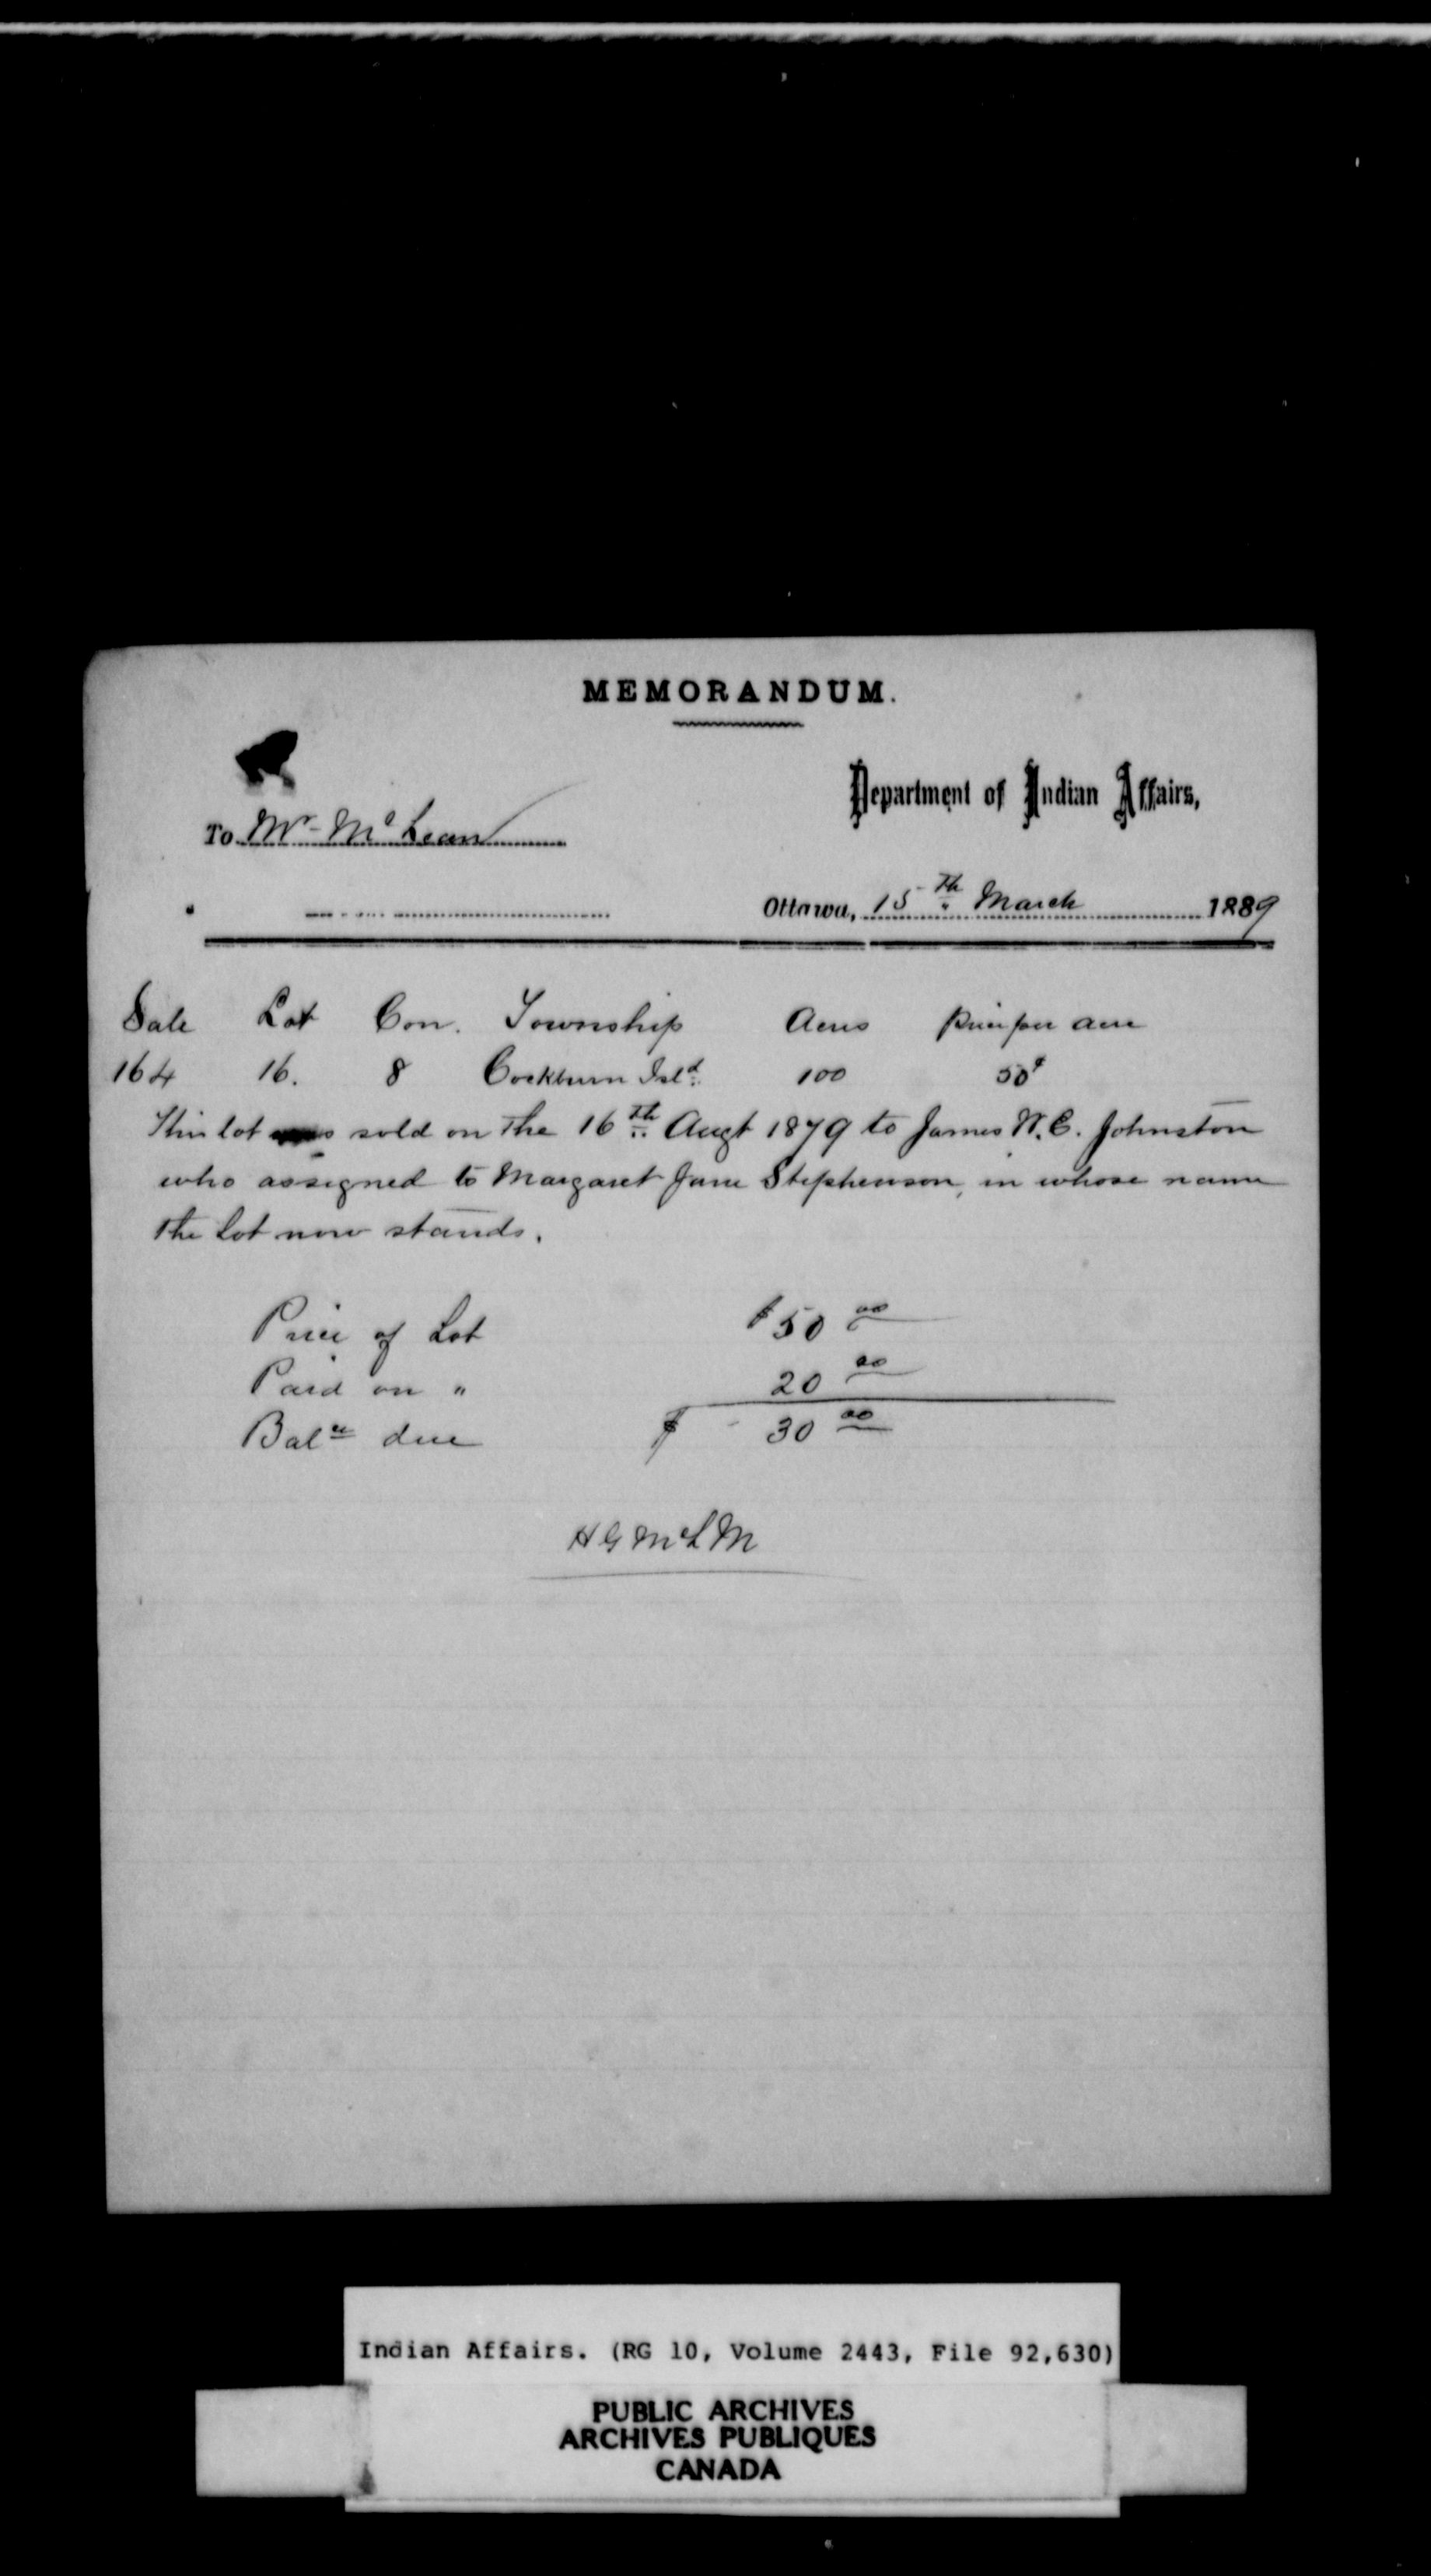 MEMORANDUM.
Department of Indian Affairs,
To Mr McLean
Ottawa, 15th March 1889
Sale Lot Con. Township Acres Price per acre
164 16. 8 Cockburn Isld. 100 50¢
This lot was sold on the 16th Augt 1879 to James W. C. Johnston
who assigned to Margaret Jane Stephenson, in whose name
the lot now stands.
Price of Lot $50 00
Paid on " 20 00
Balce due $ 30 00
H G McL M
Indian Affairs. (RG 10, Volume 2443, File 92,630)
PUBLIC ARCHIVES
ARCHIVES PUBLIQUES
CANADA